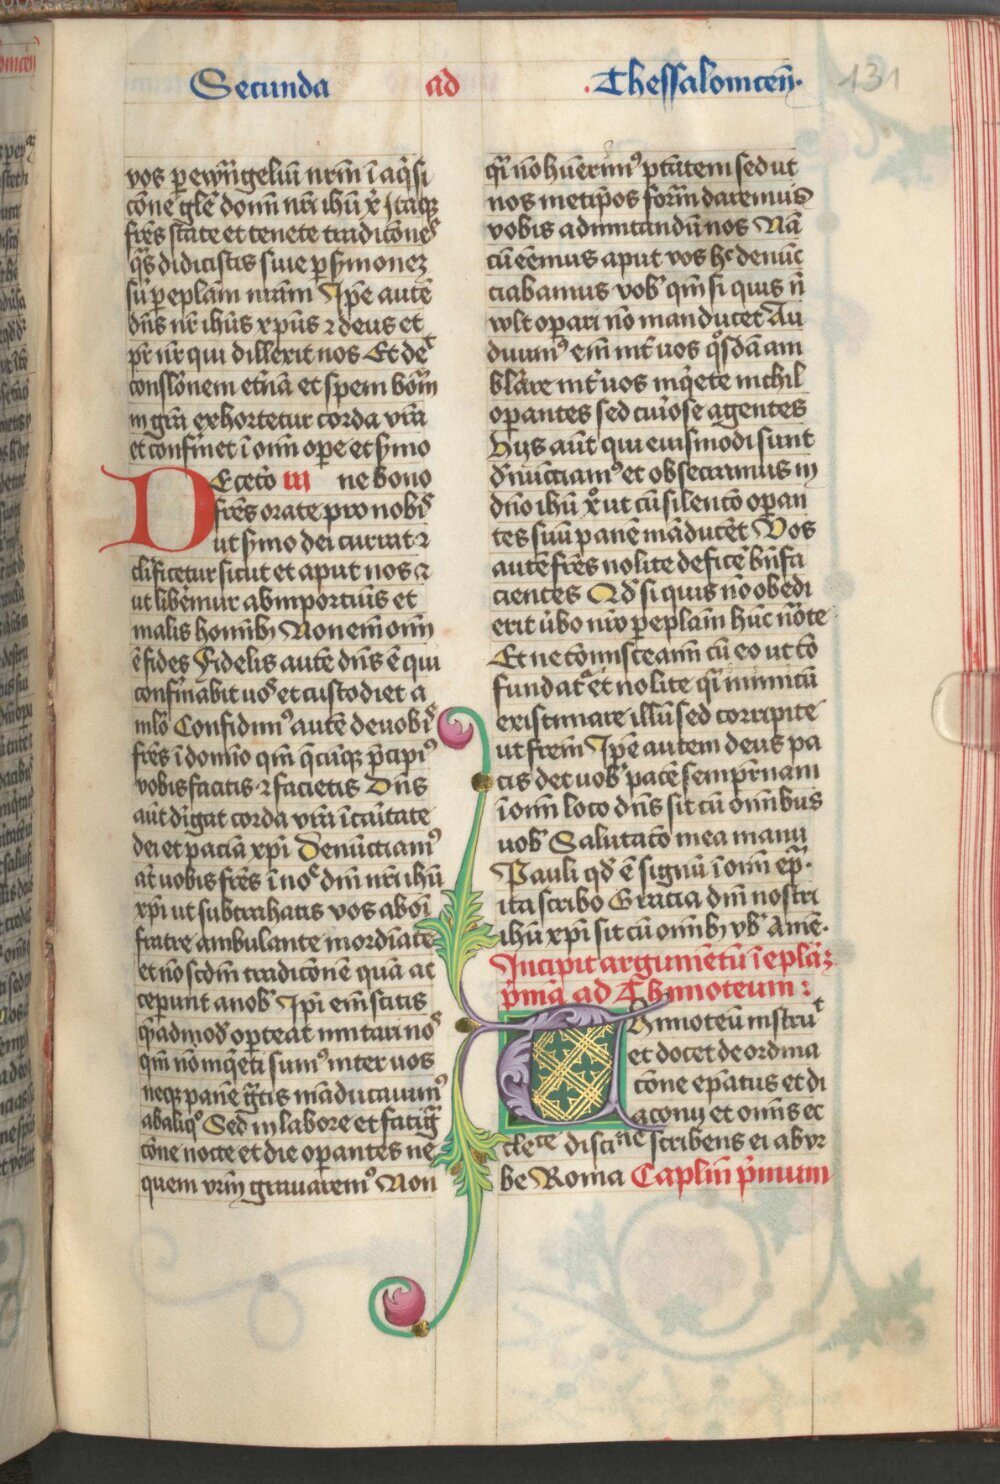 Secunda ad Thessalonicen̄.
131
vos p ewāngeliū nr̄m ī aq̄si
cōne gl̄e domī nr̄i ihū xp̄i Itaqꝫ
fr̄es state et tenete tradicōnes
q̄s didicistis siue p ẜmonez
siū p eplam nr̄am Ip̄e autē
dn̄s nr̄ ihūs xp̄us ⁊ deus et
pr̄ nr̄ qui dillexit nos Et de͛
consl̄onem et̄nā et spem bōm̄
in gr̄a exhortetur corda vr̄a
et confirmet ī om̄i ope et ẜmo
De cet̄o iii ne bono
fr̄es orate pro nobis
ut ẜmo dei currat ⁊
clīficetur sicut et aput nos ⁊
ut libēmur ab inportunis et
malis hominibꝫ Non em̄ om̄i
ē fides Fidelis autē dn̄s ē qui
confirmabit uos et custodiet a
malo Confidimꝰ autē de uobis
fr̄es ī domīo qm̄ q̄cūqꝫ p̄cipiꝰ
vobis facitis ⁊ facietis Dn̄s
aūt dirigat corda vr̄a ī caritate
dei et paciā xp̄i Denūcciamꝰ
aūt uobis fr̄es ī noīe dn̄i nr̄i ihū
xp̄i ut subtrahatis vos ab oī
fratre ambulante inordīate
et nō scd̄m tradicōnē quā ac
ceperunt a nobis Ip̄i em̄ scitis
q̄admodū oporteat imitari nos
qm̄ nō inq̄eti sumꝰ inter uos
neqꝫ panē gr̄tis māducauimꝰ
ab aliqͦ Sed in labore et fatig̅
cōne nocte et die opantes ne
quem vr̄m grauaremꝰ Non
q̄i nō huerimꝰ p̄tātem sed ut
nos metip̄os form̄ daremus
vobis ad imitandū nos Nā
cū eēmus aput vos hͦ denūc
ciabamus vob̄ qm̄ si quis n̄
wlt opari nō manducet Au
diuimꝰ em̄ int̄ uos qͦsdā am
bl̄are int̄ uos inq̄ete nichil
opantes sed cur̄iose agentes
Hijs aūt qui eiusmodi sunt
dn̄ūcciamꝰ et obsecramus in
dn̄o ihū xp̄o ut cū silencio opan
tes suū panē māducēt Vos
autē fr̄es nolite deficē bn̄fa
cientes Qd̄ si quis nō obedi
erit ūbo nr̄o p eplam hūc nōte
Et ne cōmisceam̄i cū eo ut cō
fundatͬ et nolite q̄i inimicū
existimare illū sed corripite
ut frēm Ip̄e autem deus pa
cis det uob̄ pacē sempit̄nam
ī om̄i loco dn̄s sit cū omībus
uob̄ Salutaco̅ mea manu
Pauli qd̄ ē signū ī om̄i ep̄la.
ita scribo Gracia dn̄i nostri
ihū xp̄i sit cū omībꝫ vob̄ Amē.
Incipit argumētū ī eplāꝫ
p̄mā ad Thimoteum:
Thimoteū instru͛t
et docet de ordina
cōne ep̄atus et di
aconij et omīs ec
clē͛ce disci͛ne scribens ei ab vr
be Roma Caplm̄ p̄mum